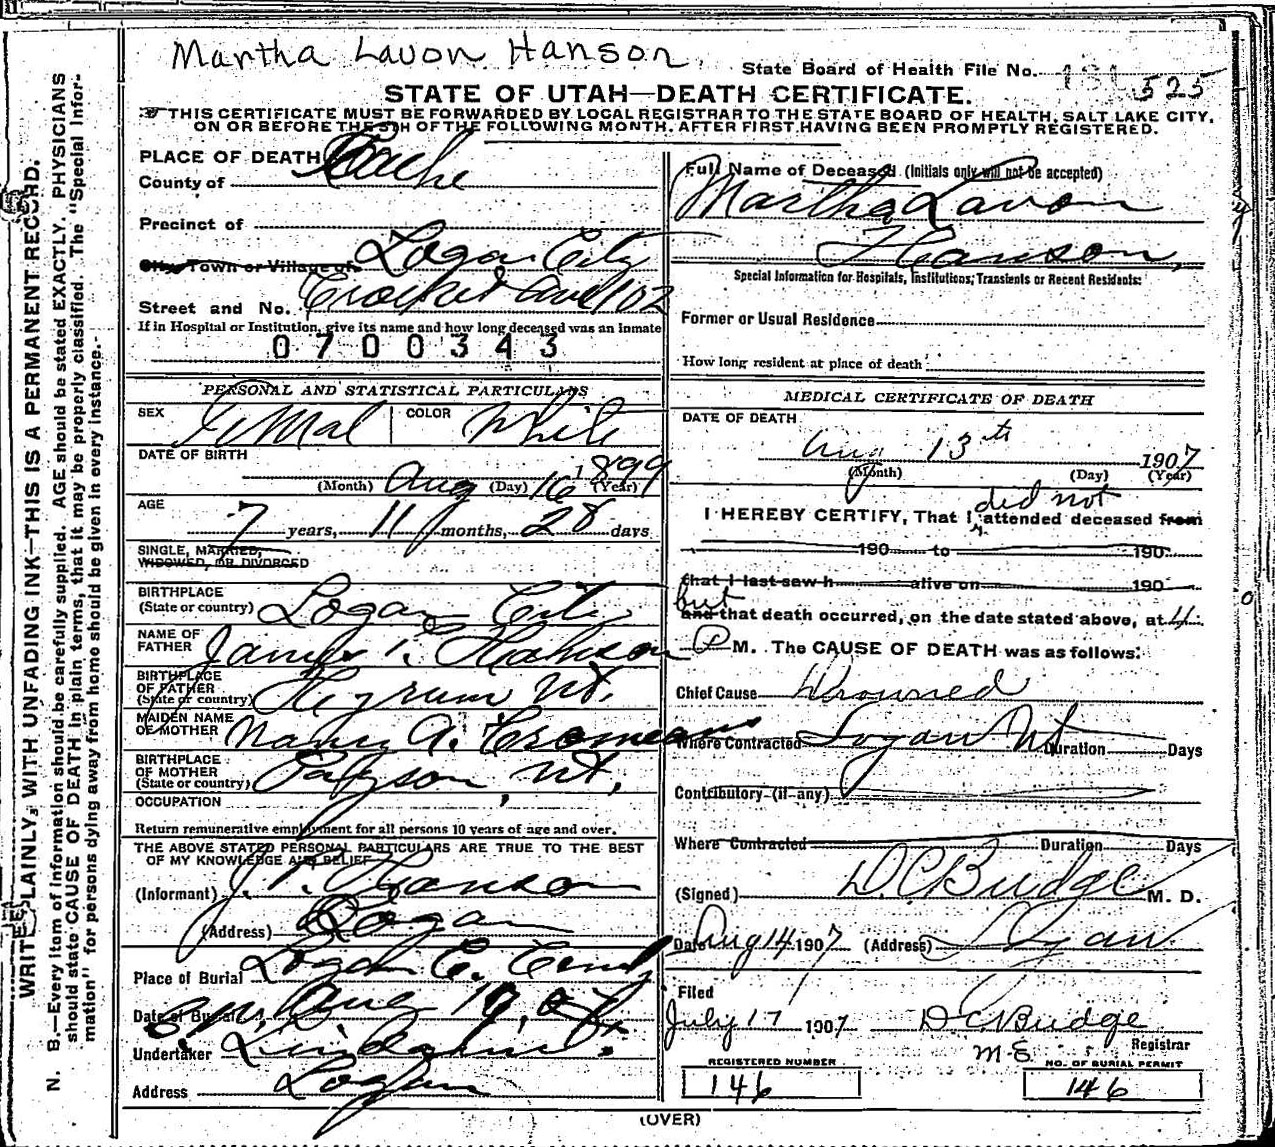 Martha Lavon Hanson.
State Board of Health File No. 525
STATE OF UTAH—DEATH CERTIFICATE.
THIS CERTIFICATE MUST BE FORWARDED BY LOCAL REGISTRAR TO THE STATE BOARD OF HEALTH, SALT LAKE CITY,
ON OR BEFORE THE 5TH OF THE FOLLOWING MONTH, AFTER FIRST HAVING BEEN PROMPTLY REGISTERED.
WRITE PLAINLY, WITH UNFADING INK—THIS IS A PERMANENT RECORD.
N. B.—Every item of information should be carefully supplied. AGE should be stated EXACTLY. PHYSICIANS
should state CAUSE OF DEATH in plain terms, that it may be properly classified. The "Special Infor-
mation" for persons dying away from home should be given in every instance.
PLACE OF DEATH
County of Cache
Precinct of
City, Town or Village of Logan City
Street and No. Crocket Ave 102
If in Hospital or Institution, give its name and how long deceased was an inmate
0700343
PERSONAL AND STATISTICAL PARTICULARS
SEX FeMal COLOR White
DATE OF BIRTH
(Month) Aug (Day) 16 1899 (Year)
AGE
7 years, 11 months, 28 days
SINGLE, MARRIED,
WIDOWED, OR DIVORCED
BIRTHPLACE
(State or country) Logan City
NAME OF
FATHER James P. Hanson
BIRTHPLACE
OF FATHER
(State or country) Hyrum Ut.
MAIDEN NAME
OF MOTHER Nancy A.
BIRTHPLACE
OF MOTHER
(State or country) Payson, Ut,
OCCUPATION
Return remunerative employment for all persons 10 years of age and over.
THE ABOVE STATED PERSONAL PARTICULARS ARE TRUE TO THE BEST
OF MY KNOWLEDGE AND BELIEF
(Informant) J. P. Hanson
(Address) Logan
Place of Burial Logan C. Cemty
Date of Burial Aug
Undertaker Lindquist.
Address Logan
Full Name of Deceased (Initials only will not be accepted)
Martha Lavon
Hanson,
Special Information for Hospitals, Institutions, Transients or Recent Residents:
Former or Usual Residence
How long resident at place of death
MEDICAL CERTIFICATE OF DEATH
DATE OF DEATH
Aug 13th 1907
(Month) (Day) (Year)
did not
I HEREBY CERTIFY, That I attended deceased from
190 to 190
that I last saw h alive on 190
but
and that death occurred, on the date stated above, at 4
P M. The CAUSE OF DEATH was as follows:
Chief Cause Drowned
Where Contracted Logan Ut Duration Days
Contributory (if any)
Where Contracted Duration Days
(Signed) D.C. Budge M. D.
Date Aug 14 1907 (Address) Logan
Filed
July 17 1907 D.C. Budge
Registrar
REGISTERED NUMBER
146
NO. OF BURIAL PERMIT
146
(OVER)